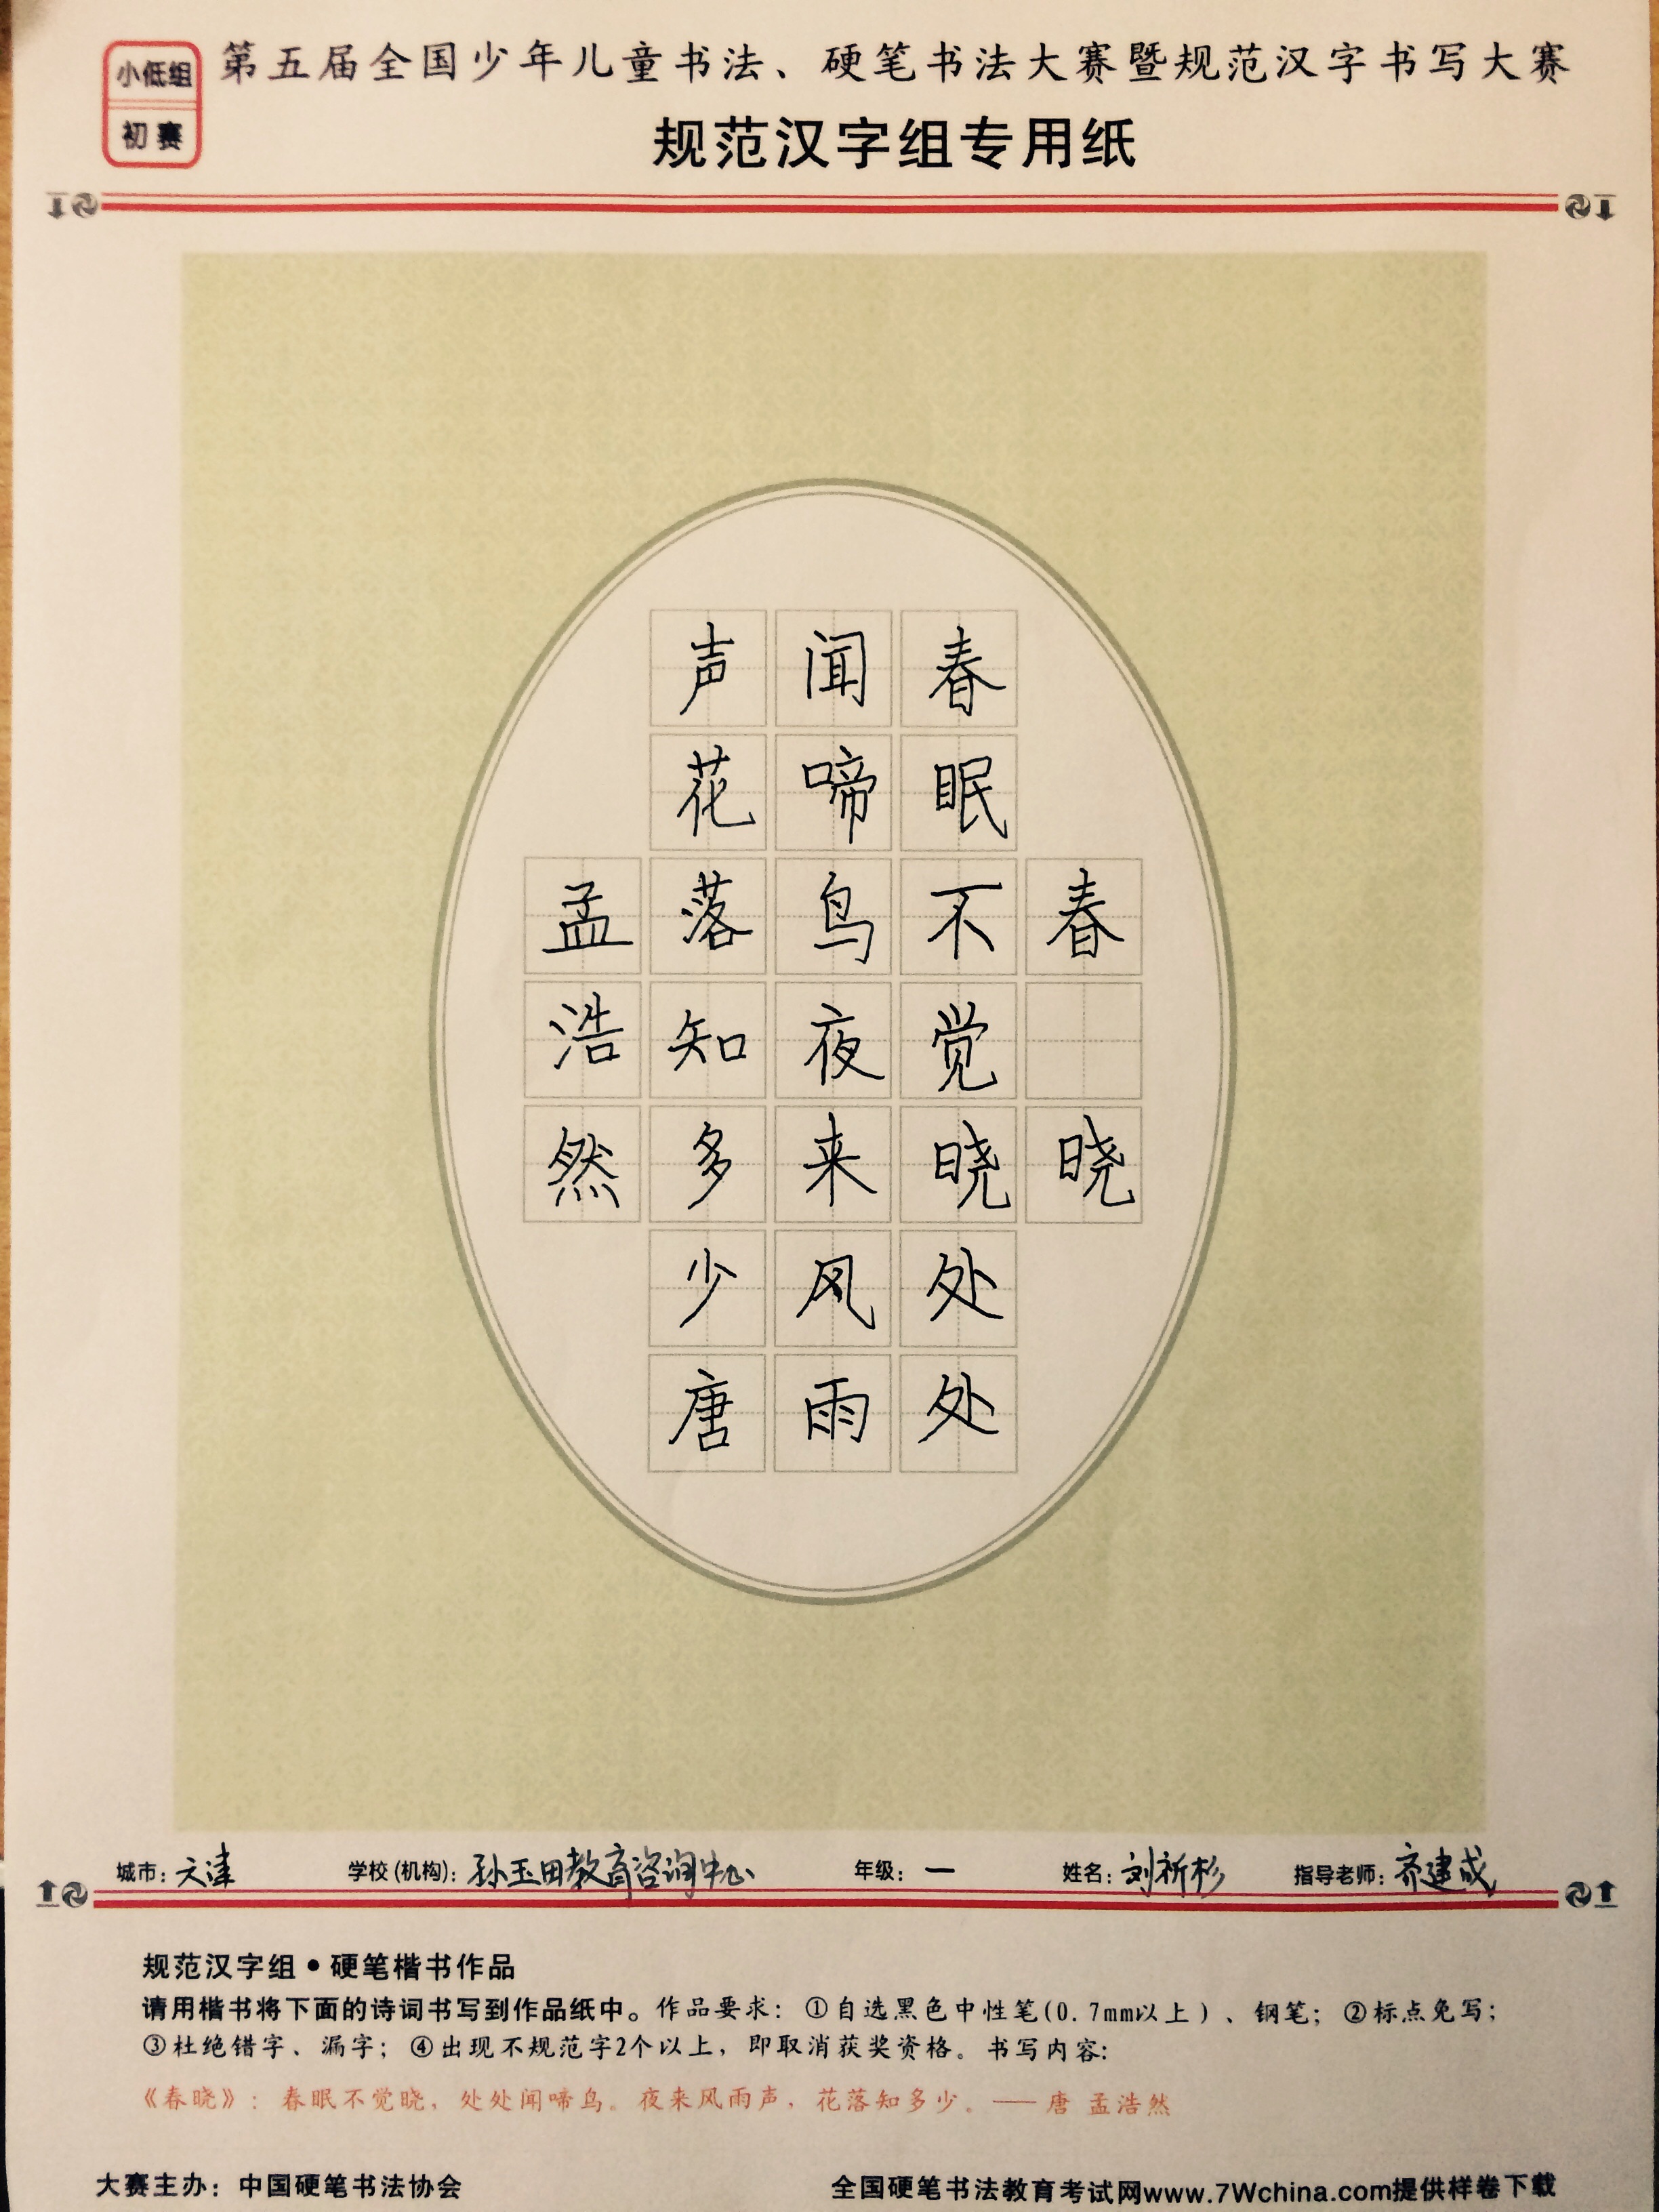 小低组
初赛
第五届全国少年儿童书法、硬笔书法大赛暨规范汉字书写大赛
规范汉字组专用纸
春晓
春眠不觉晓处处
闻啼鸟夜来风雨
声花落知多少唐
孟浩然
城市：天津 学校(机构)：孙玉田教育咨询中心 年级：一 姓名：刘祈杉 指导老师：齐建成
规范汉字组•硬笔楷书作品
请用楷书将下面的诗词书写到作品纸中。作品要求：①自选黑色中性笔(0.7mm以上)、钢笔；②标点免写；
③杜绝错字、漏字；④出现不规范字2个以上，即取消获奖资格。书写内容：
《春晓》：春眠不觉晓，处处闻啼鸟。夜来风雨声，花落知多少。——唐 孟浩然
大赛主办：中国硬笔书法协会 全国硬笔书法教育考试网www.7Wchina.com提供样卷下载